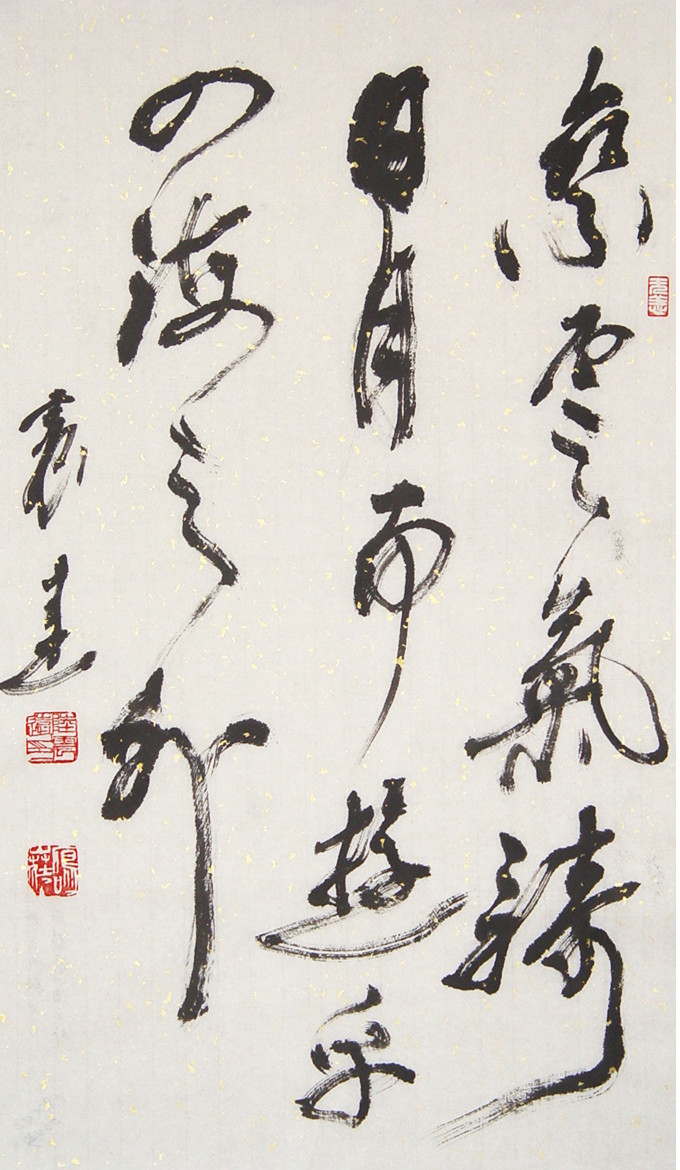 乘雲氣騎
日月而遊乎
四海之外